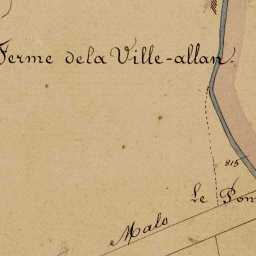 Ferme de la Ville-allan.
815
Le Pon
Malo